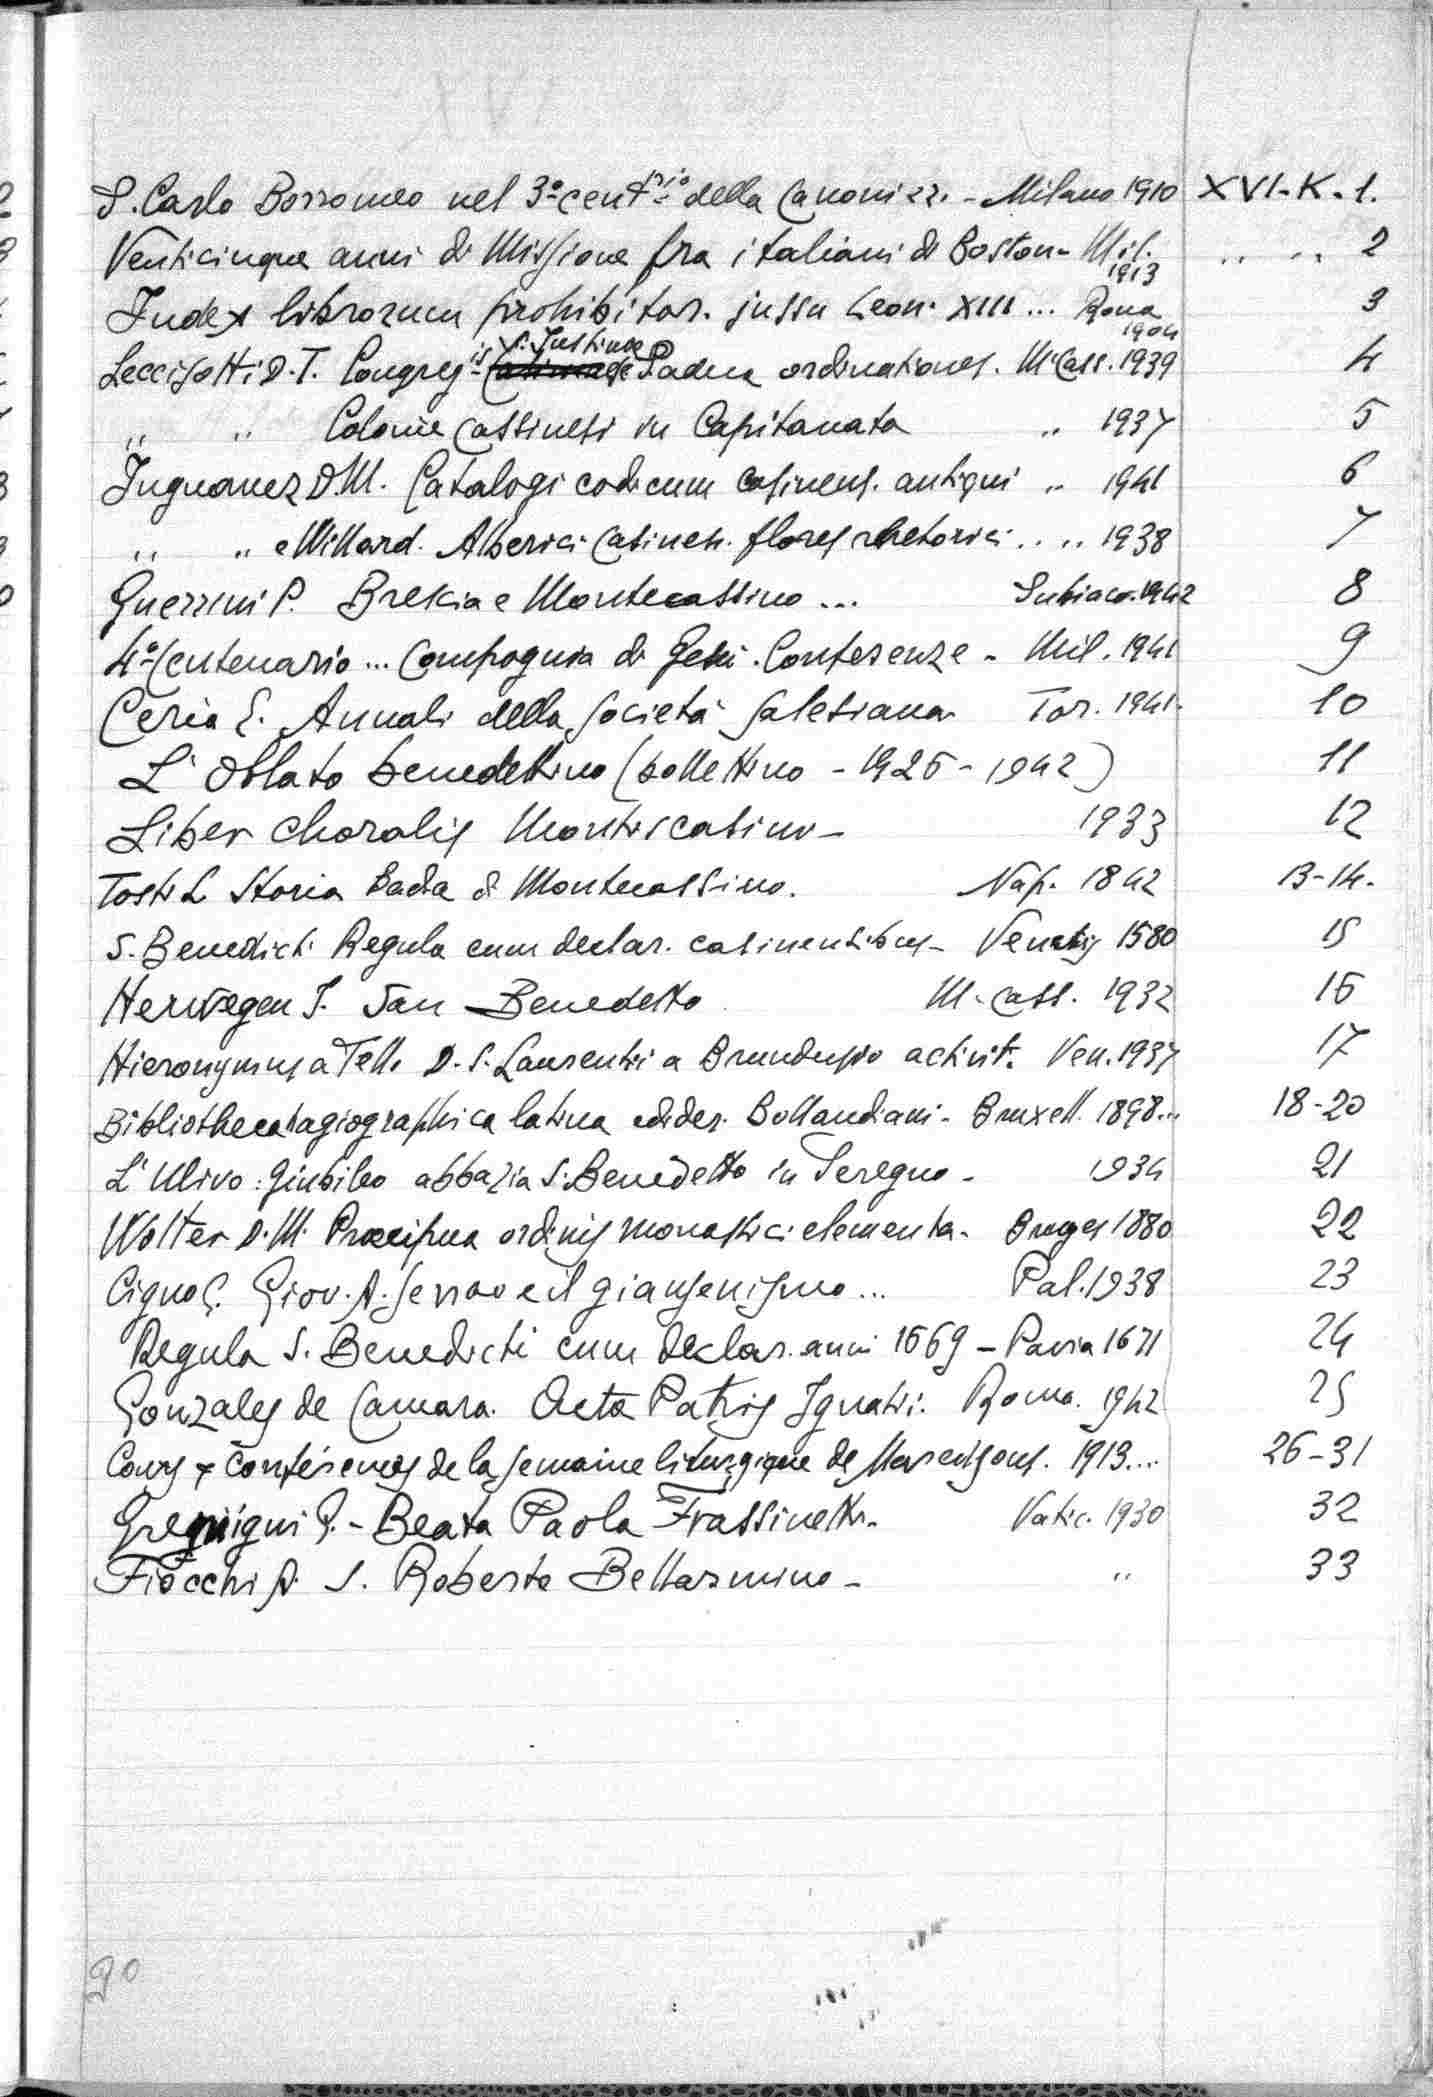 S. Carlo Borromeo nel 3º centrio della Canonizz. - Milano 1910 XVI-K-1.
Venticinque anni di Missione fra italiani di Boston - Mil. 1913 " " 2
Index librorum prohibitor. jussu Leon. XIII ... Roma 1904 3
Leccisotti D. T. Congregis S. Justinae de Padua ordinationes. M. Cass. 1939 4
" " Colonie Cassinesi in Capitanata " 1937 5
Inguanez D. M. Catalogi codicum casinens. antiqui " 1941 6
" " e Willard. Alberici Casinen. flores rhetorici " " 1938 7
Guerrini P. Brescia e Montecassino ... Subiaco 1942 8
4º Centenario ... Compagnia di Gesù. Conferenze - Mil. 1941 9
Ceria E. Annali della Società Salesiana Tor. 1941. 10
L'Oblato benedettino (bollettino - 1925 - 1942) 11
Liber choralis Montiscasini - 1933 12
Tosti L. Storia Badia di Montecassino. Nap. 1842 13-14.
S. Benedicti Regula cum declar. casinensibus - Venetiis 1580 15
Herwegen I. San Benedetto M. Cass. 1932 16
Hieronymus a Fell. D. S. Laurentii a Brundusio activit. Ven. 1937 17
Bibliotheca hagiographica latina edider. Bollandiani - Bruxell. 1898... 18-20
L'Ulivo: Giubileo abbazia S. Benedetto in Seregno - 1934 21
Wolter D. M. Praecipua ordinis monastici elementa - Bruges 1880 22
Cigno G. Giov. A. Serrao e il giansenismo ... Pal. 1938 23
Regula S. Benedicti cum declar. anni 1669 - Pavia 1671 24
Gonzales de Camara. Acta Patris Ignatii. Roma. 1942 25
Cours & Conférences de la semaine liturgique de Maredsous. 1913... 26-31
P. - Beata Paola Frassinetti - Vatic. 1930 32
Fiocchi A. S. Roberto Bellarmino - " 33
90